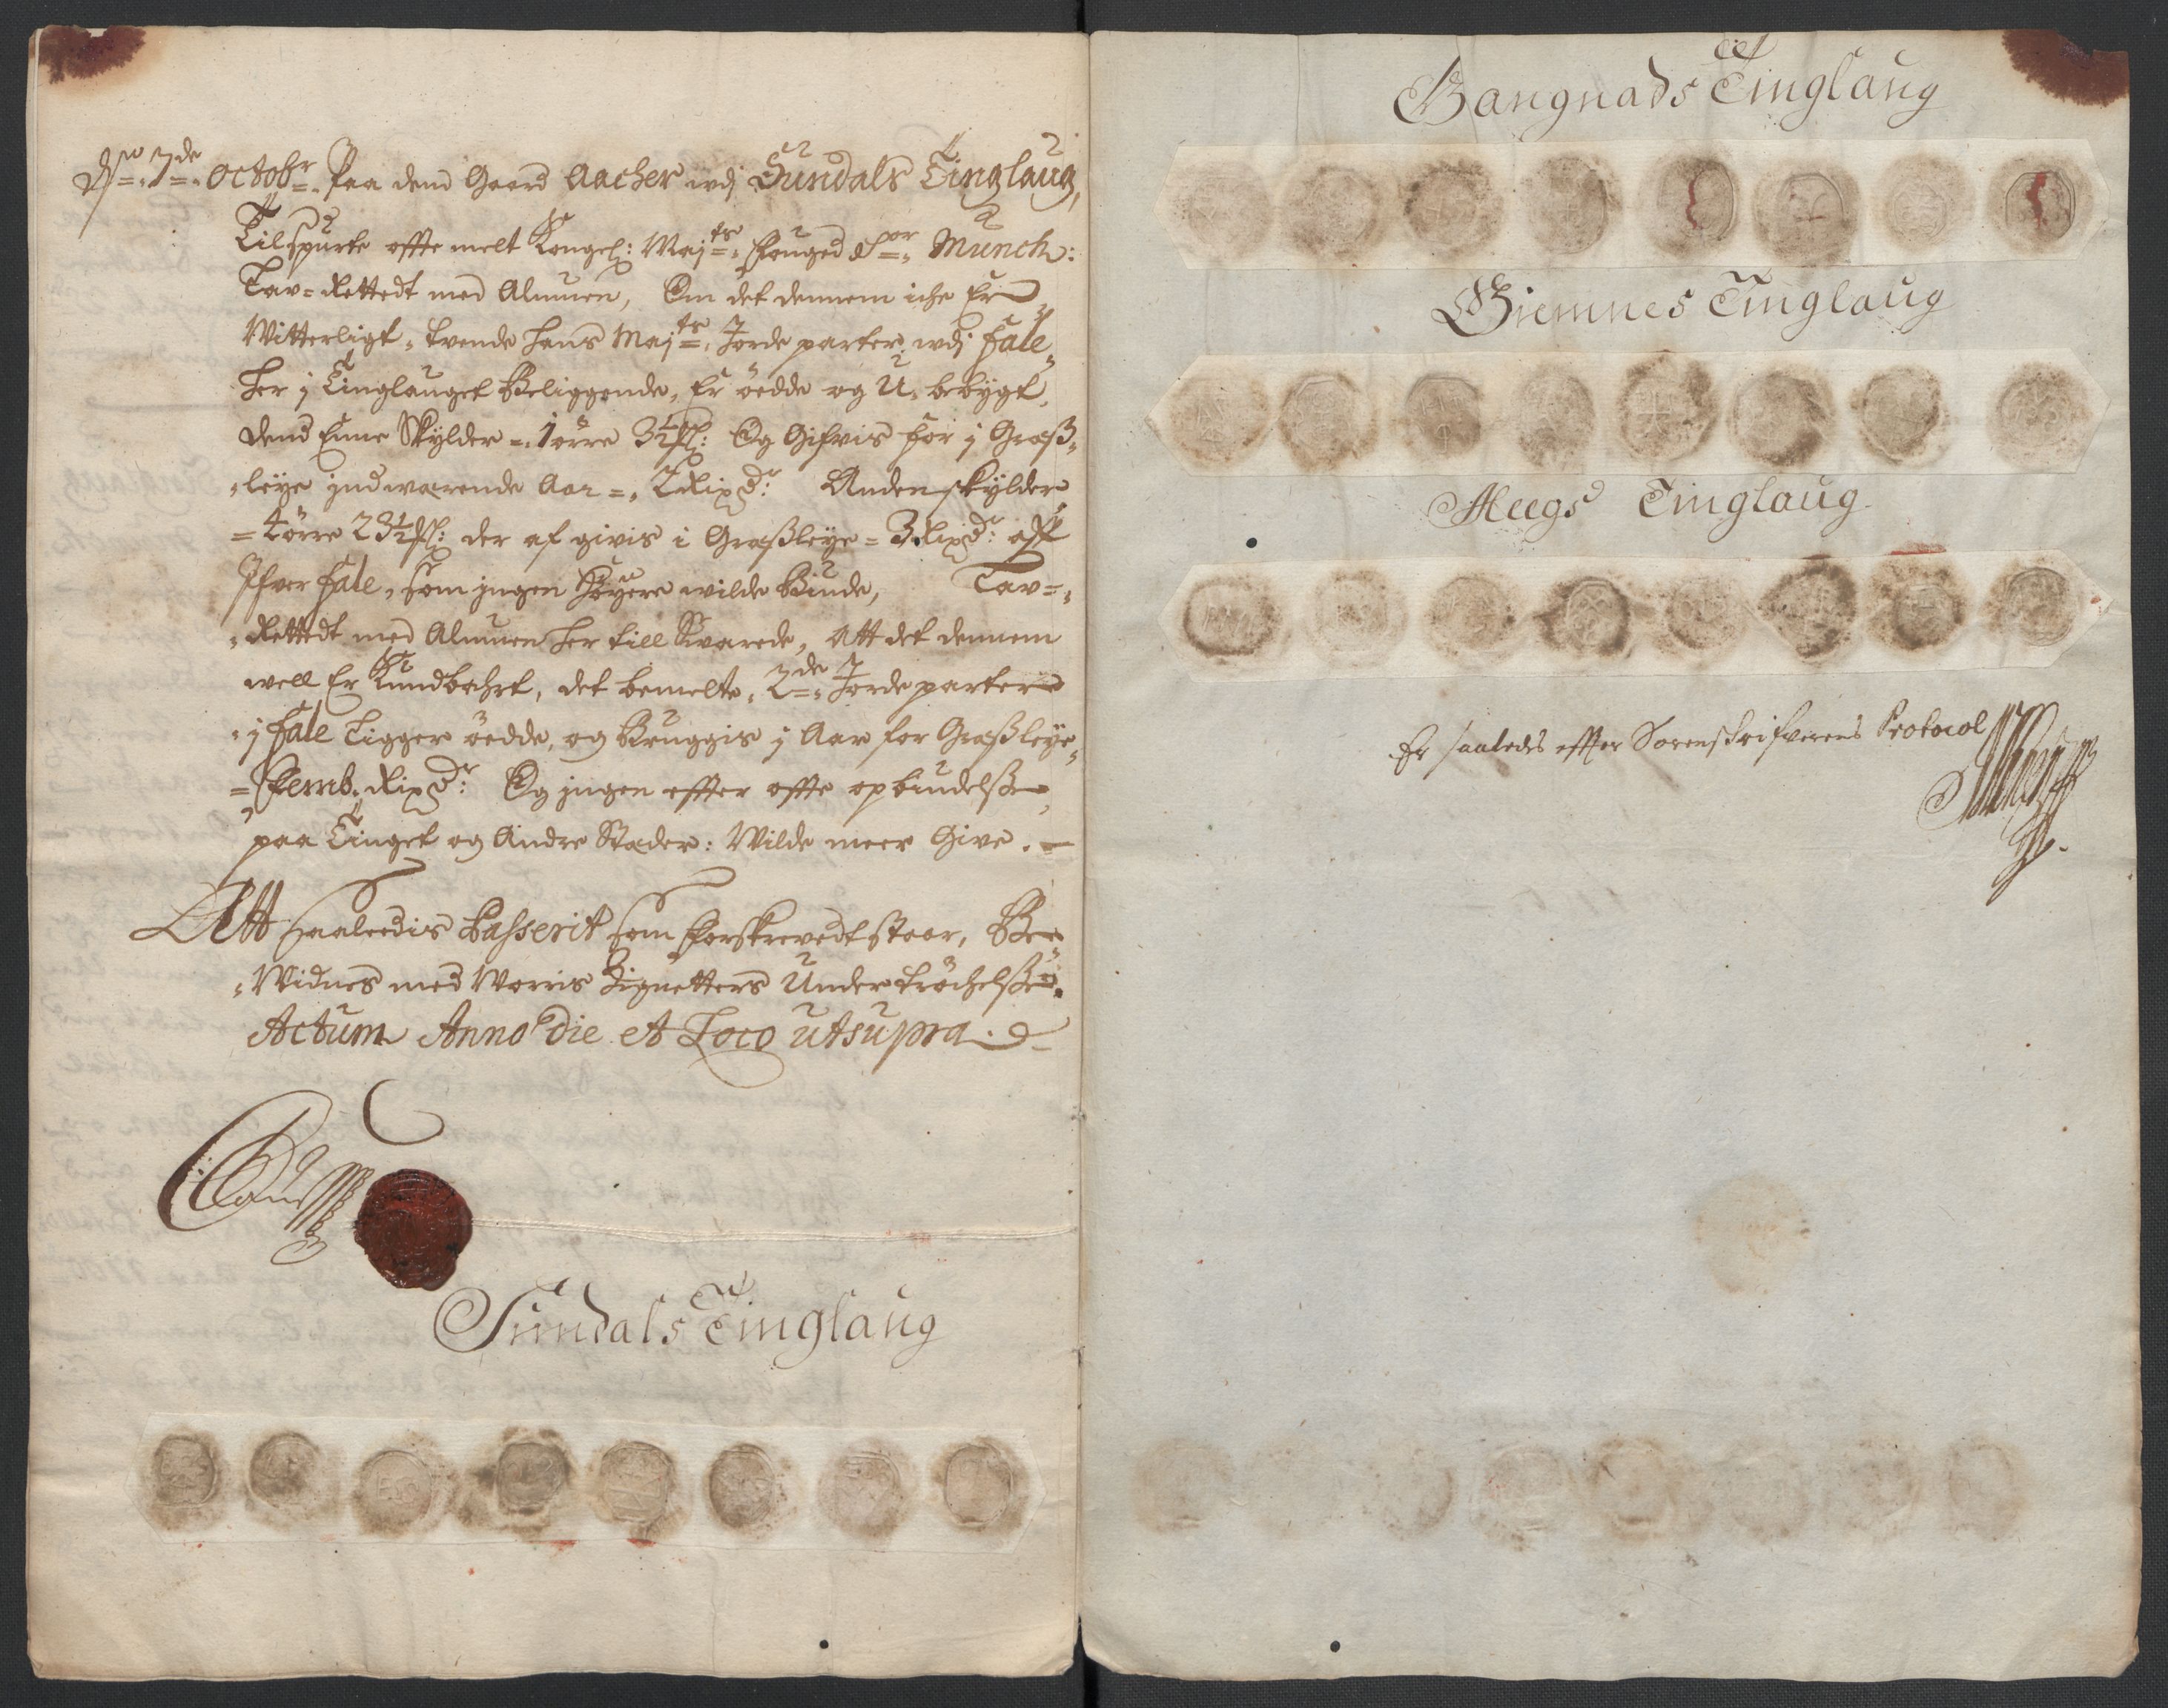 Dito 7de Octobr: Paa dend Gaard Aacher udj Sundals Tinglaug,
Tilspurte offte melt Kongel: Majts Fouged Sr Munch:
Lav=Rettedt med Almuen, Om det dennem iche Er
Witterligt, tvende hans Majts Jorde parter udj Fale
her j Tinglauget Beliggende, Er öedde og U,bebygt,
dend Enne Skylder = 1 örre 3½ : Og Gifvis for j Graß,
,leye jndwærende Aar =, 2 Rixdr: Anden skylder
= 4 örre 23½ : der af givis i Graßleye = 3 Rixdr: aff
Ifver Fale, som jngen høyere wilde Biude, Lav=,
,Rettedt med Almuen her till Svarede, att det dennem
well Er Kundbahrt, det bemelte, 2de Jorde parter
,j Fale Ligger öedde, og Bruggis j Aar for Graßleye,
= Femb, Rixdr: Og jngen effter offte opbiudelße
paa Tinget og Andre Stæder: Wilde meer Give. –
Att saaleedis Passerit som forskrevedt staar, Be
,Widnes med Worris Zignetters Undertröchelße.
Actum Anno die et Loco utsupra.
Sundals Tinglaug
Bangnads Tinglaug
Giemnes Tinglaug
Meegs Tinglaug
Er saaledis effter Sorenskrifverens Protocol